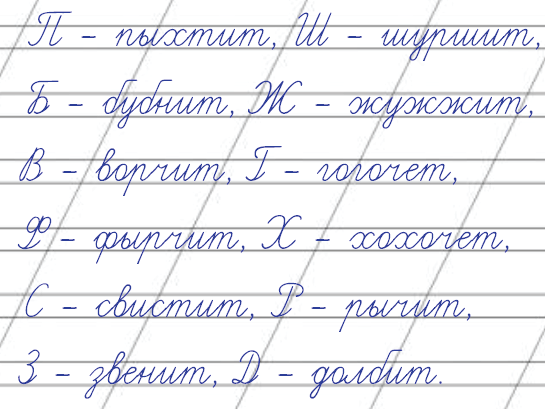 П – пыхтит, Ш – шуршит,
Б – бубнит, Ж – жужжит,
В – ворчит, Г – гогочет,
Ф – фырчит, Х – хохочет,
С – свистит, Р – рычит,
З – звенит, Д – долбит.